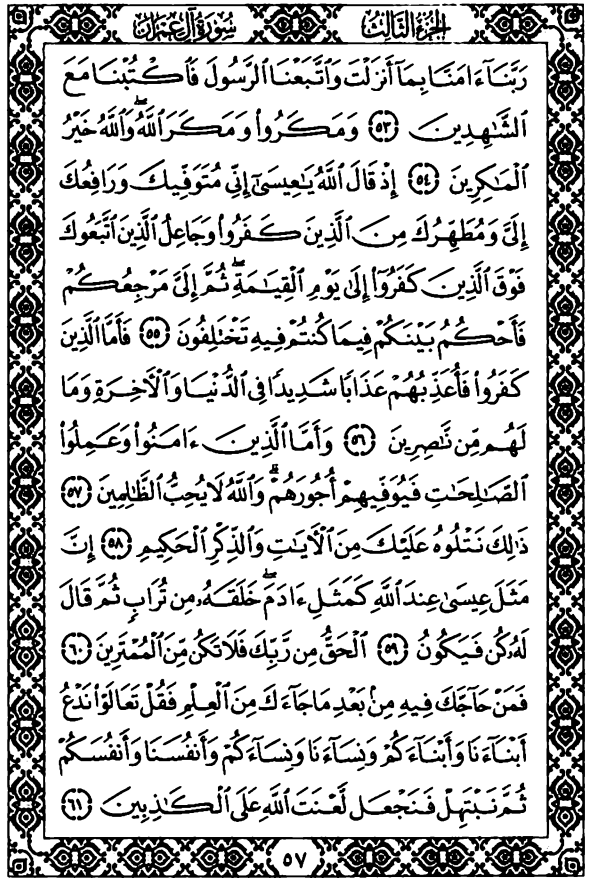 الجزء الثالث
سورة آل عمران
رَبَّنَآ ءَامَنَّا بِمَآ أَنزَلْتَ وَٱتَّبَعْنَا ٱلرَّسُولَ فَٱكْتُبْنَا مَعَ
ٱلشَّٰهِدِينَ ﴿٥٣﴾ وَمَكَرُوا۟ وَمَكَرَ ٱللَّهُۖ وَٱللَّهُ خَيْرُ
ٱلْمَٰكِرِينَ ﴿٥٤﴾ إِذْ قَالَ ٱللَّهُ يَٰعِيسَىٰٓ إِنِّى مُتَوَفِّيكَ وَرَافِعُكَ
إِلَىَّ وَمُطَهِّرُكَ مِنَ ٱلَّذِينَ كَفَرُوا۟ وَجَاعِلُ ٱلَّذِينَ ٱتَّبَعُوكَ
فَوْقَ ٱلَّذِينَ كَفَرُوٓا۟ إِلَىٰ يَوْمِ ٱلْقِيَٰمَةِۖ ثُمَّ إِلَىَّ مَرْجِعُكُمْ
فَأَحْكُمُ بَيْنَكُمْ فِيمَا كُنتُمْ فِيهِ تَخْتَلِفُونَ ﴿٥٥﴾ فَأَمَّا ٱلَّذِينَ
كَفَرُوا۟ فَأُعَذِّبُهُمْ عَذَابًا شَدِيدًا فِى ٱلدُّنْيَا وَٱلْءَاخِرَةِ وَمَا
لَهُم مِّن نَّٰصِرِينَ ﴿٥٦﴾ وَأَمَّا ٱلَّذِينَ ءَامَنُوا۟ وَعَمِلُوا۟
ٱلصَّٰلِحَٰتِ فَيُوَفِّيهِمْ أُجُورَهُمْۗ وَٱللَّهُ لَا يُحِبُّ ٱلظَّٰلِمِينَ ﴿٥٧﴾
ذَٰلِكَ نَتْلُوهُ عَلَيْكَ مِنَ ٱلْءَايَٰتِ وَٱلذِّكْرِ ٱلْحَكِيمِ ﴿٥٨﴾ إِنَّ
مَثَلَ عِيسَىٰ عِندَ ٱللَّهِ كَمَثَلِ ءَادَمَۖ خَلَقَهُۥ مِن تُرَابٍ ثُمَّ قَالَ
لَهُۥ كُن فَيَكُونُ ﴿٥٩﴾ ٱلْحَقُّ مِن رَّبِّكَ فَلَا تَكُن مِّنَ ٱلْمُمْتَرِينَ ﴿٦٠﴾
فَمَنْ حَآجَّكَ فِيهِ مِنۢ بَعْدِ مَا جَآءَكَ مِنَ ٱلْعِلْمِ فَقُلْ تَعَالَوْا۟ نَدْعُ
أَبْنَآءَنَا وَأَبْنَآءَكُمْ وَنِسَآءَنَا وَنِسَآءَكُمْ وَأَنفُسَنَا وَأَنفُسَكُمْ
ثُمَّ نَبْتَهِلْ فَنَجْعَل لَّعْنَتَ ٱللَّهِ عَلَى ٱلْكَٰذِبِينَ ﴿٦١﴾
٥٧